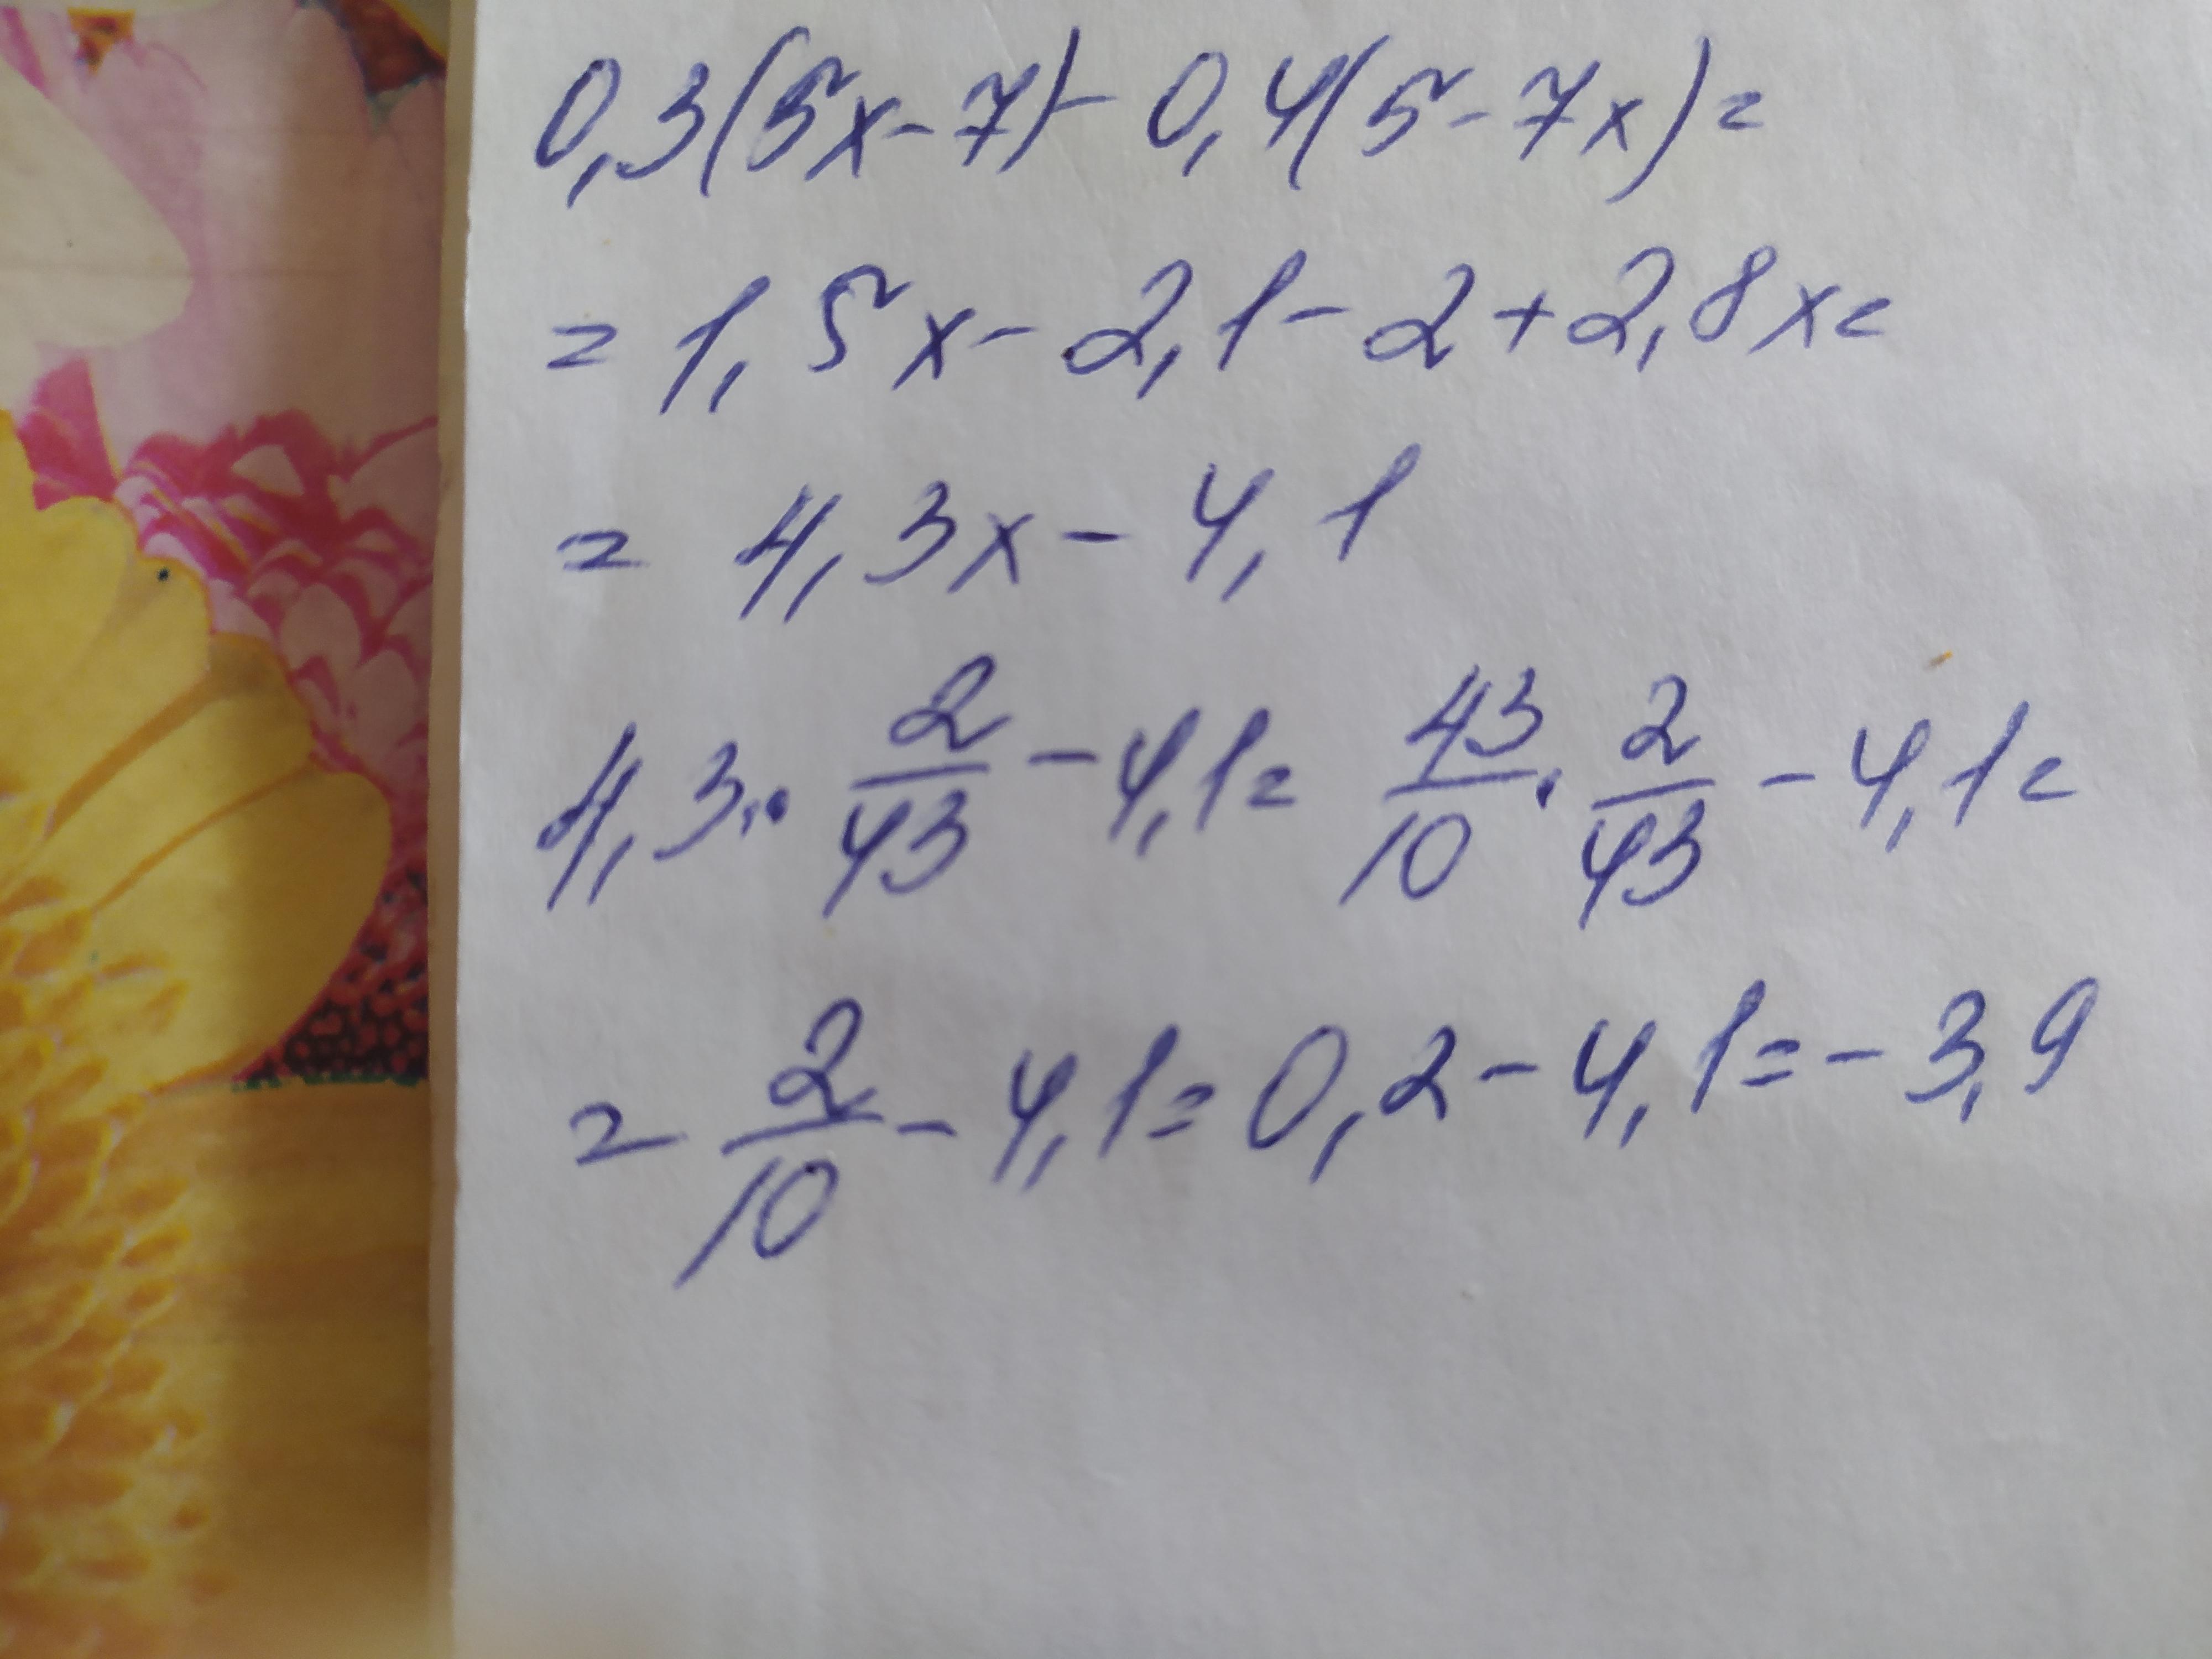 0,3(5x-7)-0,4(5-7x)=
=1,5x-2,1-2+2,8x=
=4,3x-4,1
4,3·2/43-4,1=43/10·2/43-4,1=
=2/10-4,1=0,2-4,1=-3,9